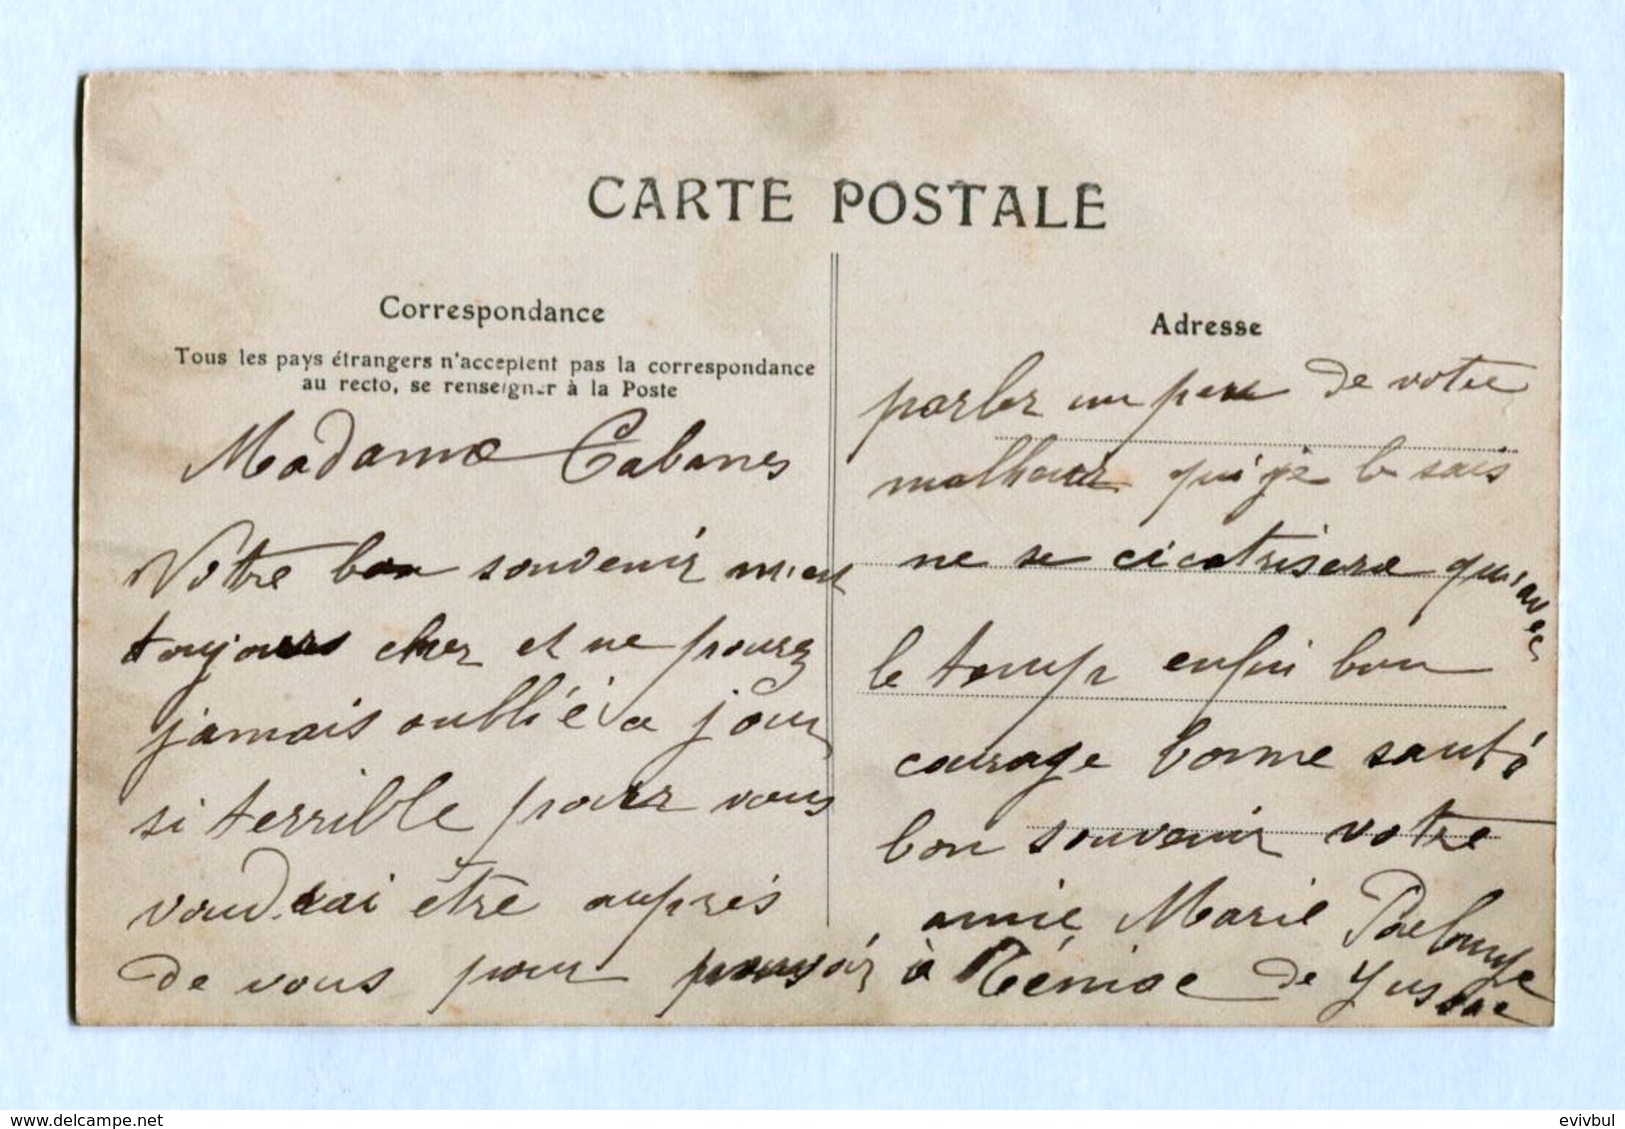 CARTE POSTALE
Correspondance
Tous les pays étrangers n'acceptent pas la correspondance
au recto, se renseigner à la Poste
Madame Cabanes
Votre bon souvenir m'est
toujours cher et ne pourez
jamais oublié ce jour
si terrible pour vous
voudrai être auprés
de vous pour pouvoir
Adresse
parler un peu de votre
malheur qui je le sais
ne se cicatrisera qu'avec
le temp enfin bon
courage bonne santé
bon souvenir votre
amie Marie
à Téniac de Yussac
delcampe.net
evivbul